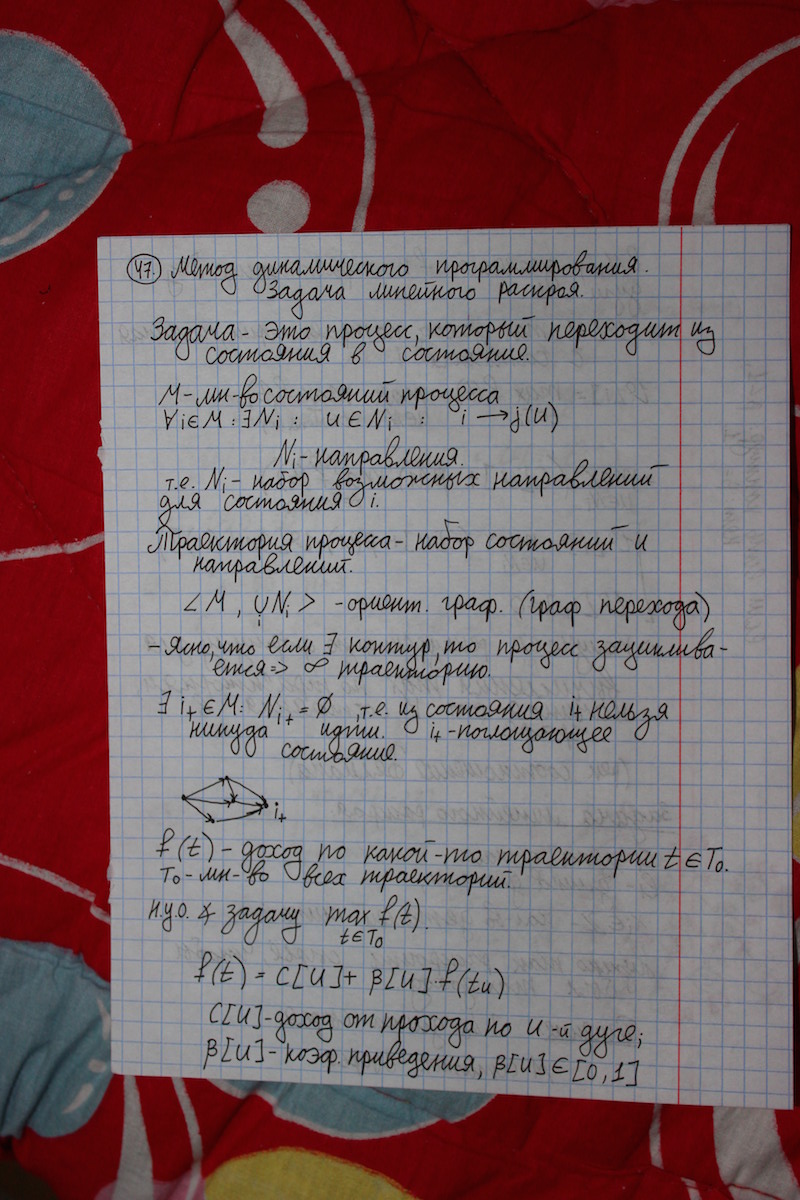 47. Метод динамического программирования.
Задача линейного раскроя.
Задача - это процесс, который переходит из
состояния в состояние.
M - мн-во состояний процесса
∀ i ∈ M : ∃ Nᵢ : u ∈ Nᵢ : i → j(u)
Nᵢ - направления.
т.е. Nᵢ - набор возможных направлений
для состояния i.
Траектория процесса - набор состояний и
направлений.
< M , ∪ᵢ Nᵢ > - ориент. граф. (граф перехода)
- Ясно, что если ∃ контур, то процесс зациклива-
ется => ∞ траекторию.
∃ i₊ ∈ M : N_i₊ = ∅ , т.е. из состояния i₊ нельзя
никуда идти. i₊ - поглощающее
состояние.
i₊
f(t) - доход по какой-то траектории t ∈ T₀.
T₀ - мн-во всех траекторий.
н.у.о. ∢ задачу max f(t).
t ∈ T₀
f(t) = C[u] + β[u] · f(tᵤ)
C[u] - доход от прохода по u-й дуге;
β[u] - коэф. приведения, β[u] ∈ [0,1]